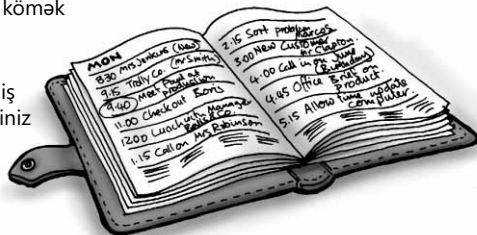 kömək
iş
iniz
MON
8.30 Mrs Jenkins (New)
9.15 Trolly Co. (Mr Smith)
9.40 Meet Paul at
production
11.00 Checkout Boris
1200 Lunch with Manager
1.15 Call on Mrs Robinson
2.15 Sort problem
3.00 New Customer
Mr Clapton.
4.00 Call in on June
(Birthday)
4.45 Office Brief on
product.
5.15 Allow time update
computer.